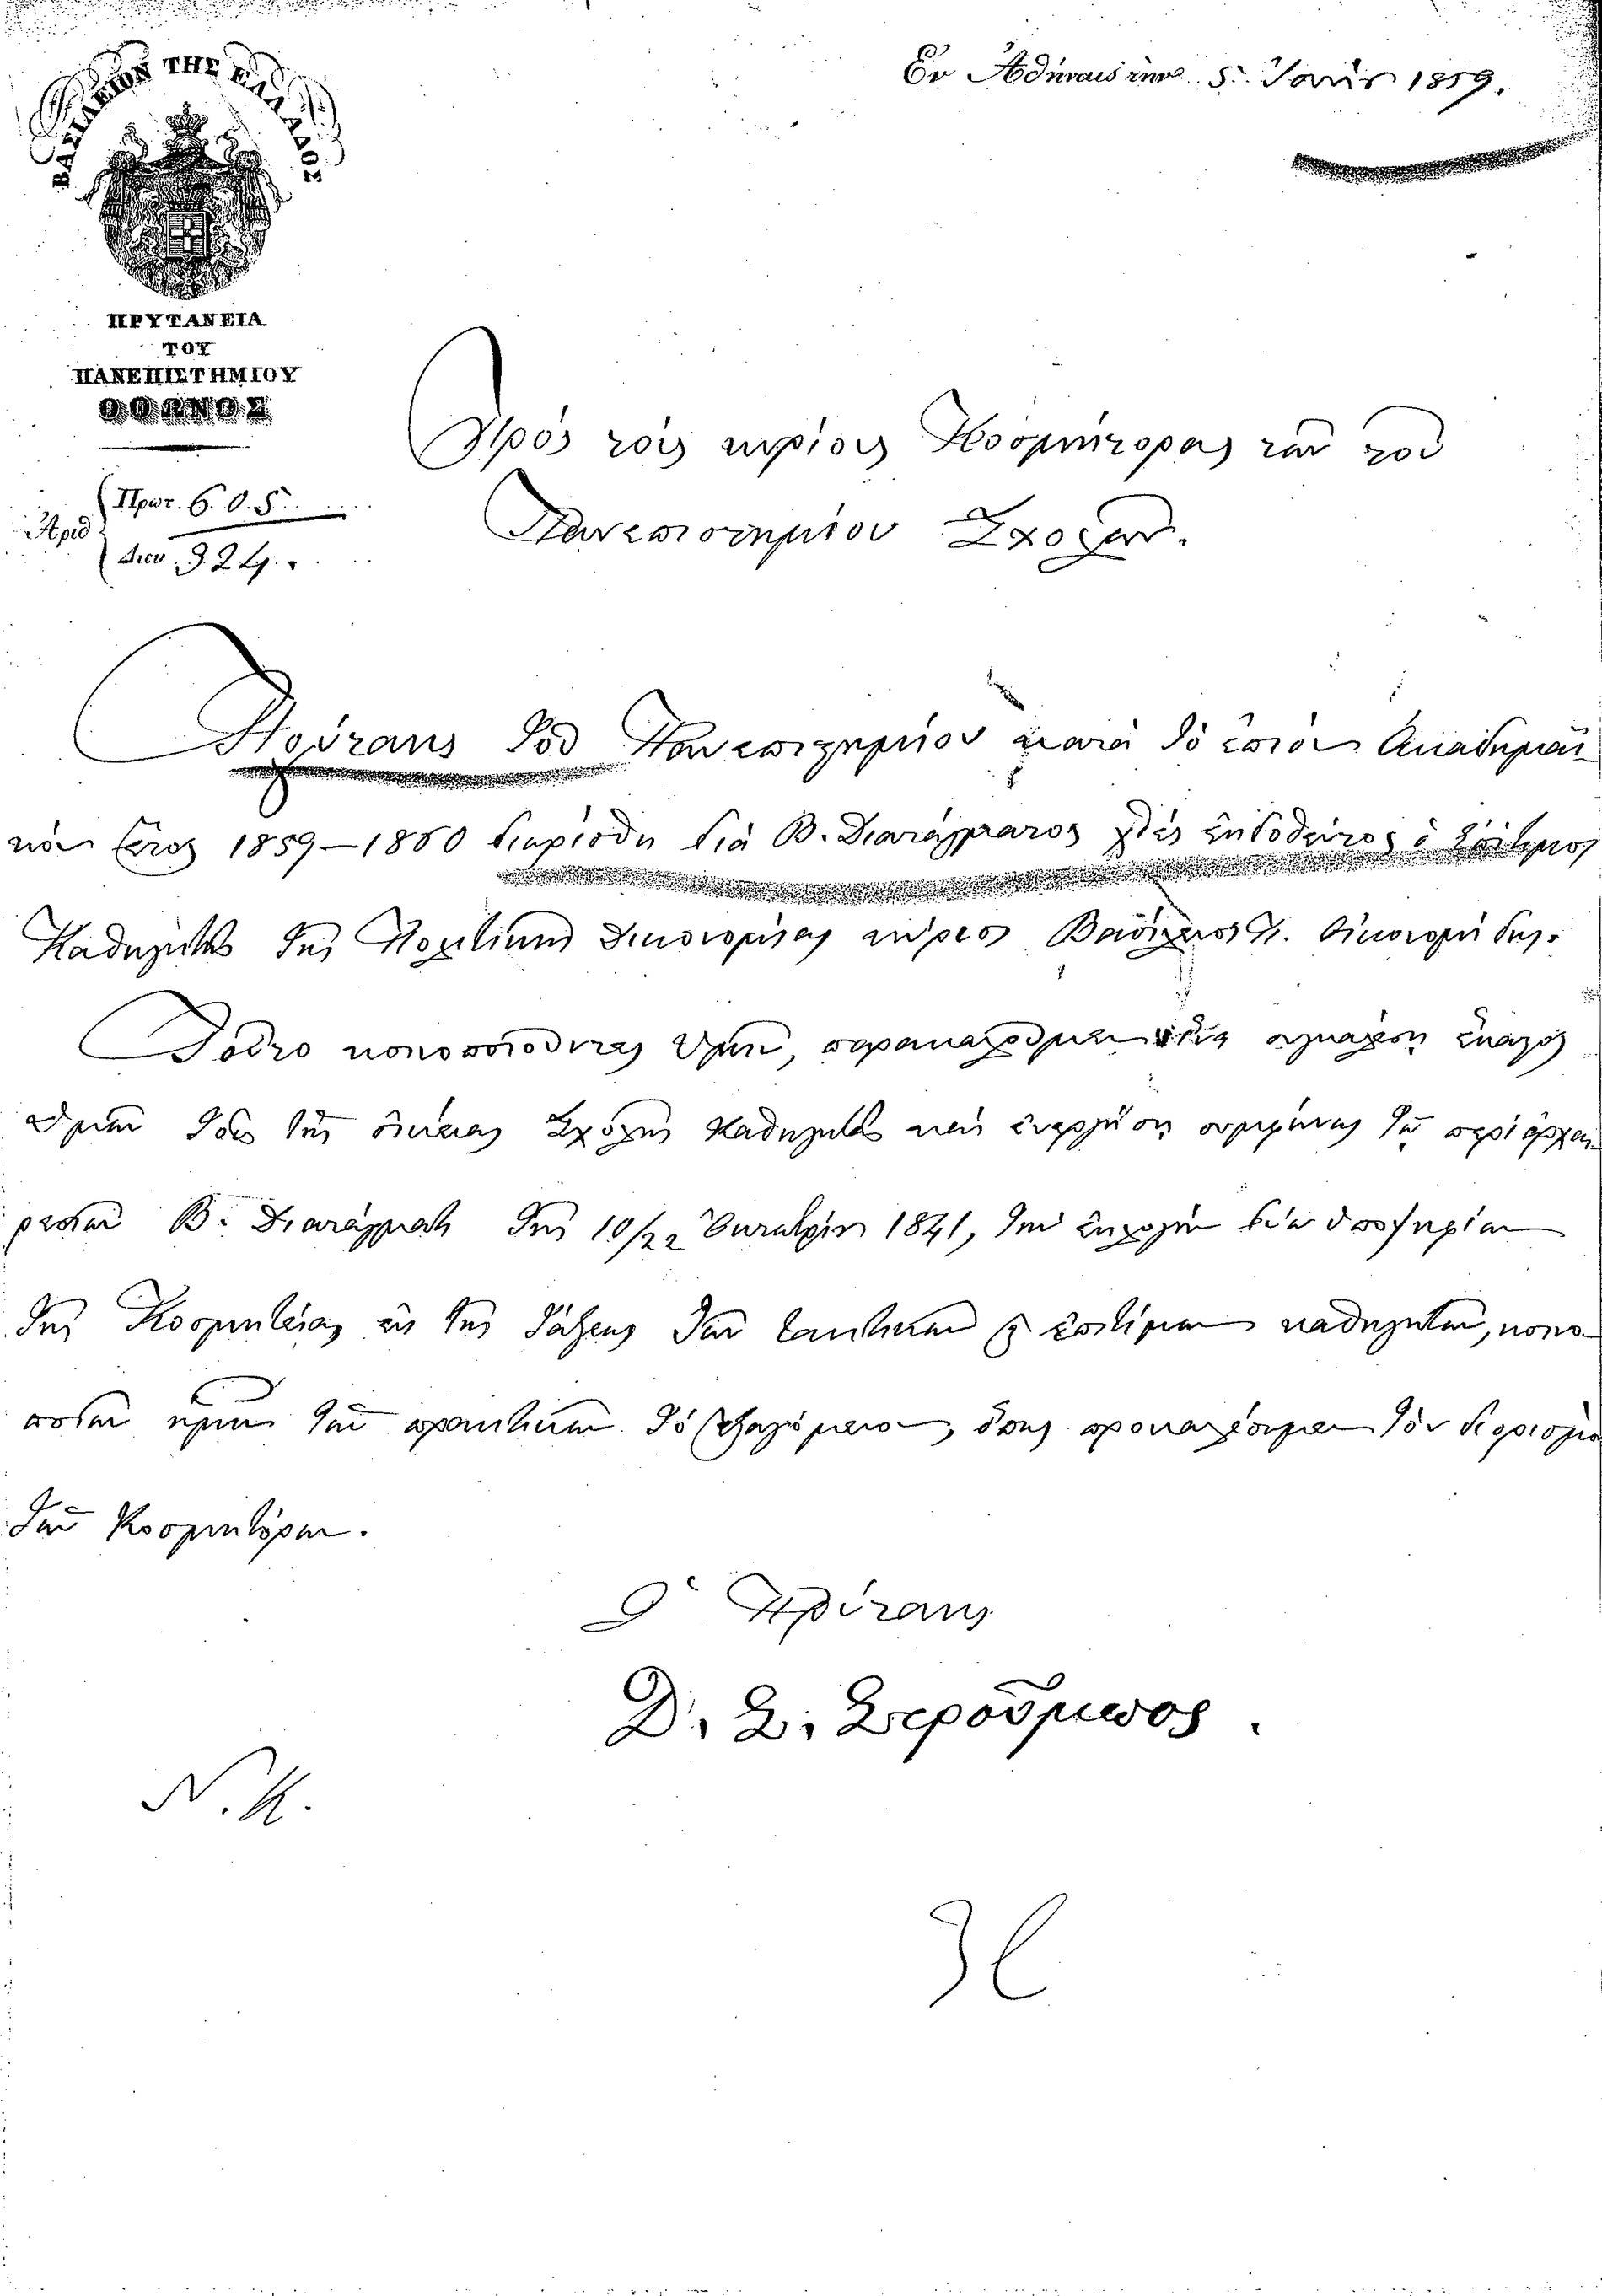 Ἐν Ἀθήναις τὴν 5 1859.
ΒΑΣΙΛΕΙΟΝ ΤΗΣ ΕΛΛΑΔΟΣ
ΠΡΥΤΑΝΕΙΑ
ΤΟΥ
ΠΑΝΕΠΙΣΤΗΜΙΟΥ
ΟΘΩΝΟΣ
Πρὸς τοὺς κυρίους Κοσμήτορας τῶν τοῦ
Πρωτ. 605
Ἀριθ
Διεκ. 324.
Πανεπιστημίου Σχολῶν.
Πρύτανις τοῦ Πανεπιστημίου κατὰ τὸ ἐπιὸν Ἀκαδημαϊ-
κὸν ἔτος 1859–1860 διωρίσθη διὰ Β. Διατάγματος χθὲς ἐκδοθέντος ὁ ἐπίτιμος
Καθηγητὴς τῆς Πολιτικῆς Οἰκονομίας κύριος Βασίλειος Ν. Οἰκονομίδης.
Τοῦτο κοινοποιοῦντες ὑμῖν, παρακαλοῦμεν ἕκαστος
ὑμῶν τοὺς τῆς οἰκείας Σχολῆς Καθηγητὰς καὶ ἐνεργήσῃ συμφώνως τῷ περὶ ἀρχαι-
ρεσιῶν Β. Διατάγματι τῆς 10/22 1841, τὴν ἐκλογὴν διὰ ψηφοφορίαν
τῆς Κοσμητείας ἐκ τῆς τάξεως τῶν τακτικῶν ἢ ἐπιτίμων καθηγητῶν, κοινο-
ποιῶν ἡμῖν τῶν πρακτικῶν τὸ ἐξαγόμενον, ὅπως προκαλέσωμεν τὸν διορισμὸν
τῶν Κοσμητόρων.
Ὁ Πρύτανις
Δ. Σ. Στρούμπος.
Ν. Κ.